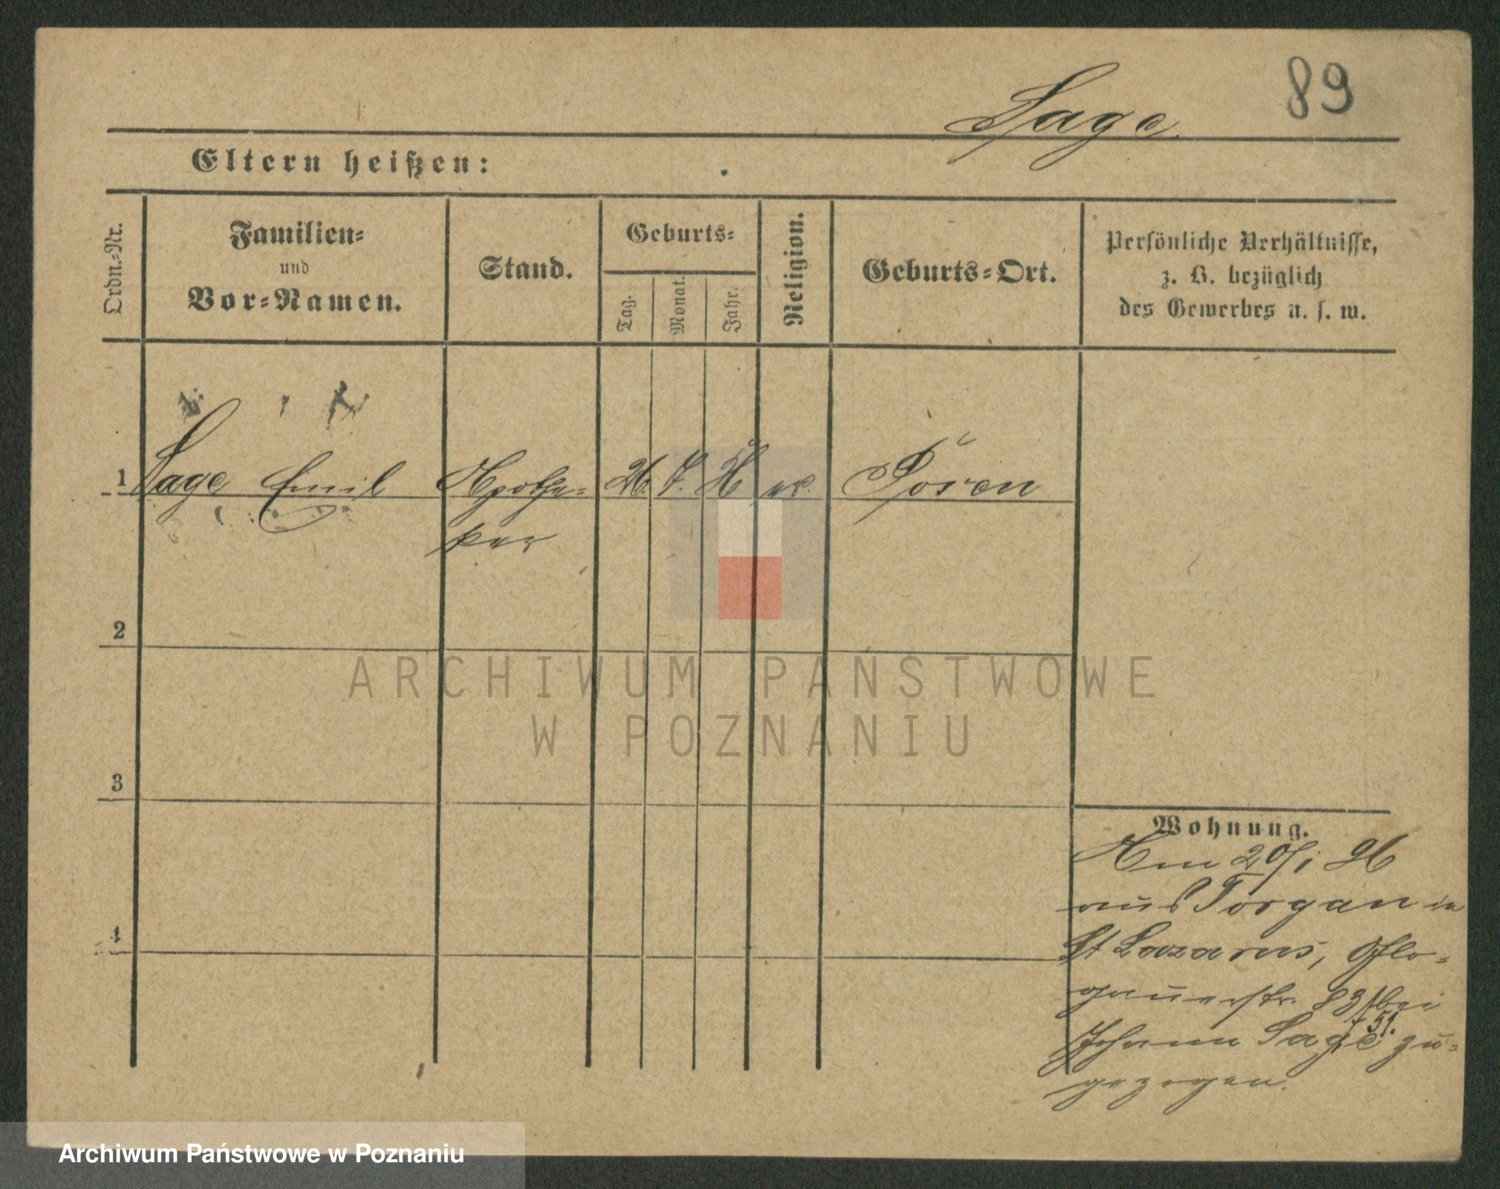 89
Sage
Eltern heißen:
Ordn.-Nr.
Familien-
und
Vor-Namen.
Stand.
Geburts-
Tag.
Monat.
Jahr.
Religion.
Geburts-Ort.
Persönliche Verhältnisse,
z. B. bezüglich
des Gewerbes u. s. w.
1 Sage Emil Apothe-
ker
26. 7.
Posen
2
3
4
Wohnung.
Am 20/1 96
aus Torgau in
St Lazarus, Glo-
gauerstr. 83 bei
Johann Sage zu-
gezogen.
ARCHIWUM PAŃSTWOWE
W POZNANIU
Archiwum Państwowe w Poznaniu